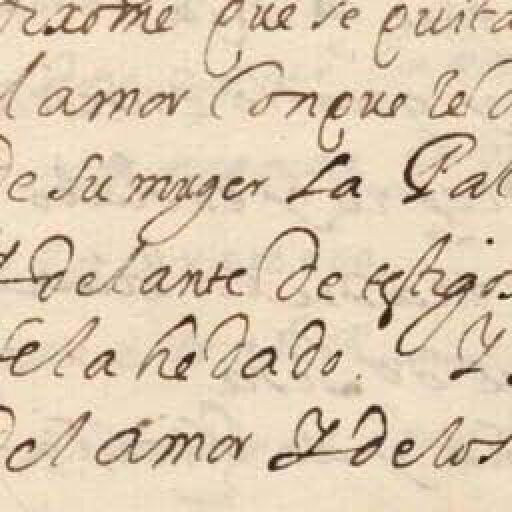 dixome que se quita
el amor Con que le d
de Su muger La Pal
Y delante de testigos
sela he dado. Y
del amor Y de los